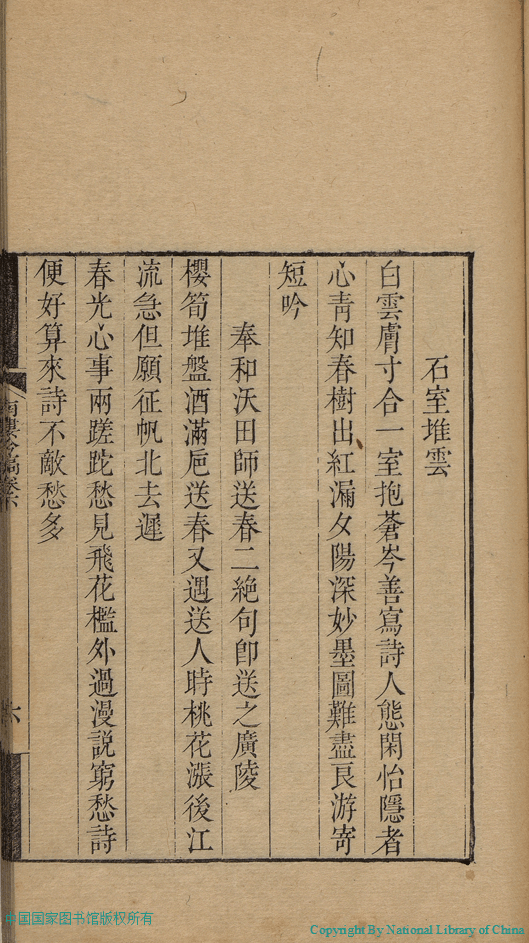 石室堆雲
白雲膚寸合一室抱蒼岑善寫詩人態閑怡隱者
心靑知春樹出紅漏夕陽深妙墨圖難盡良游寄
短吟
奉和沃田師送春二絶句卽送之廣陵
櫻筍堆盤酒滿卮送春又遇送人時桃花漲後江
流急但願征帆北去遲
春光心事兩蹉跎愁見飛花檻外過漫說窮愁詩
便好算來詩不敵愁多
六
中国国家图书馆版权所有
Copyright By National Library of China